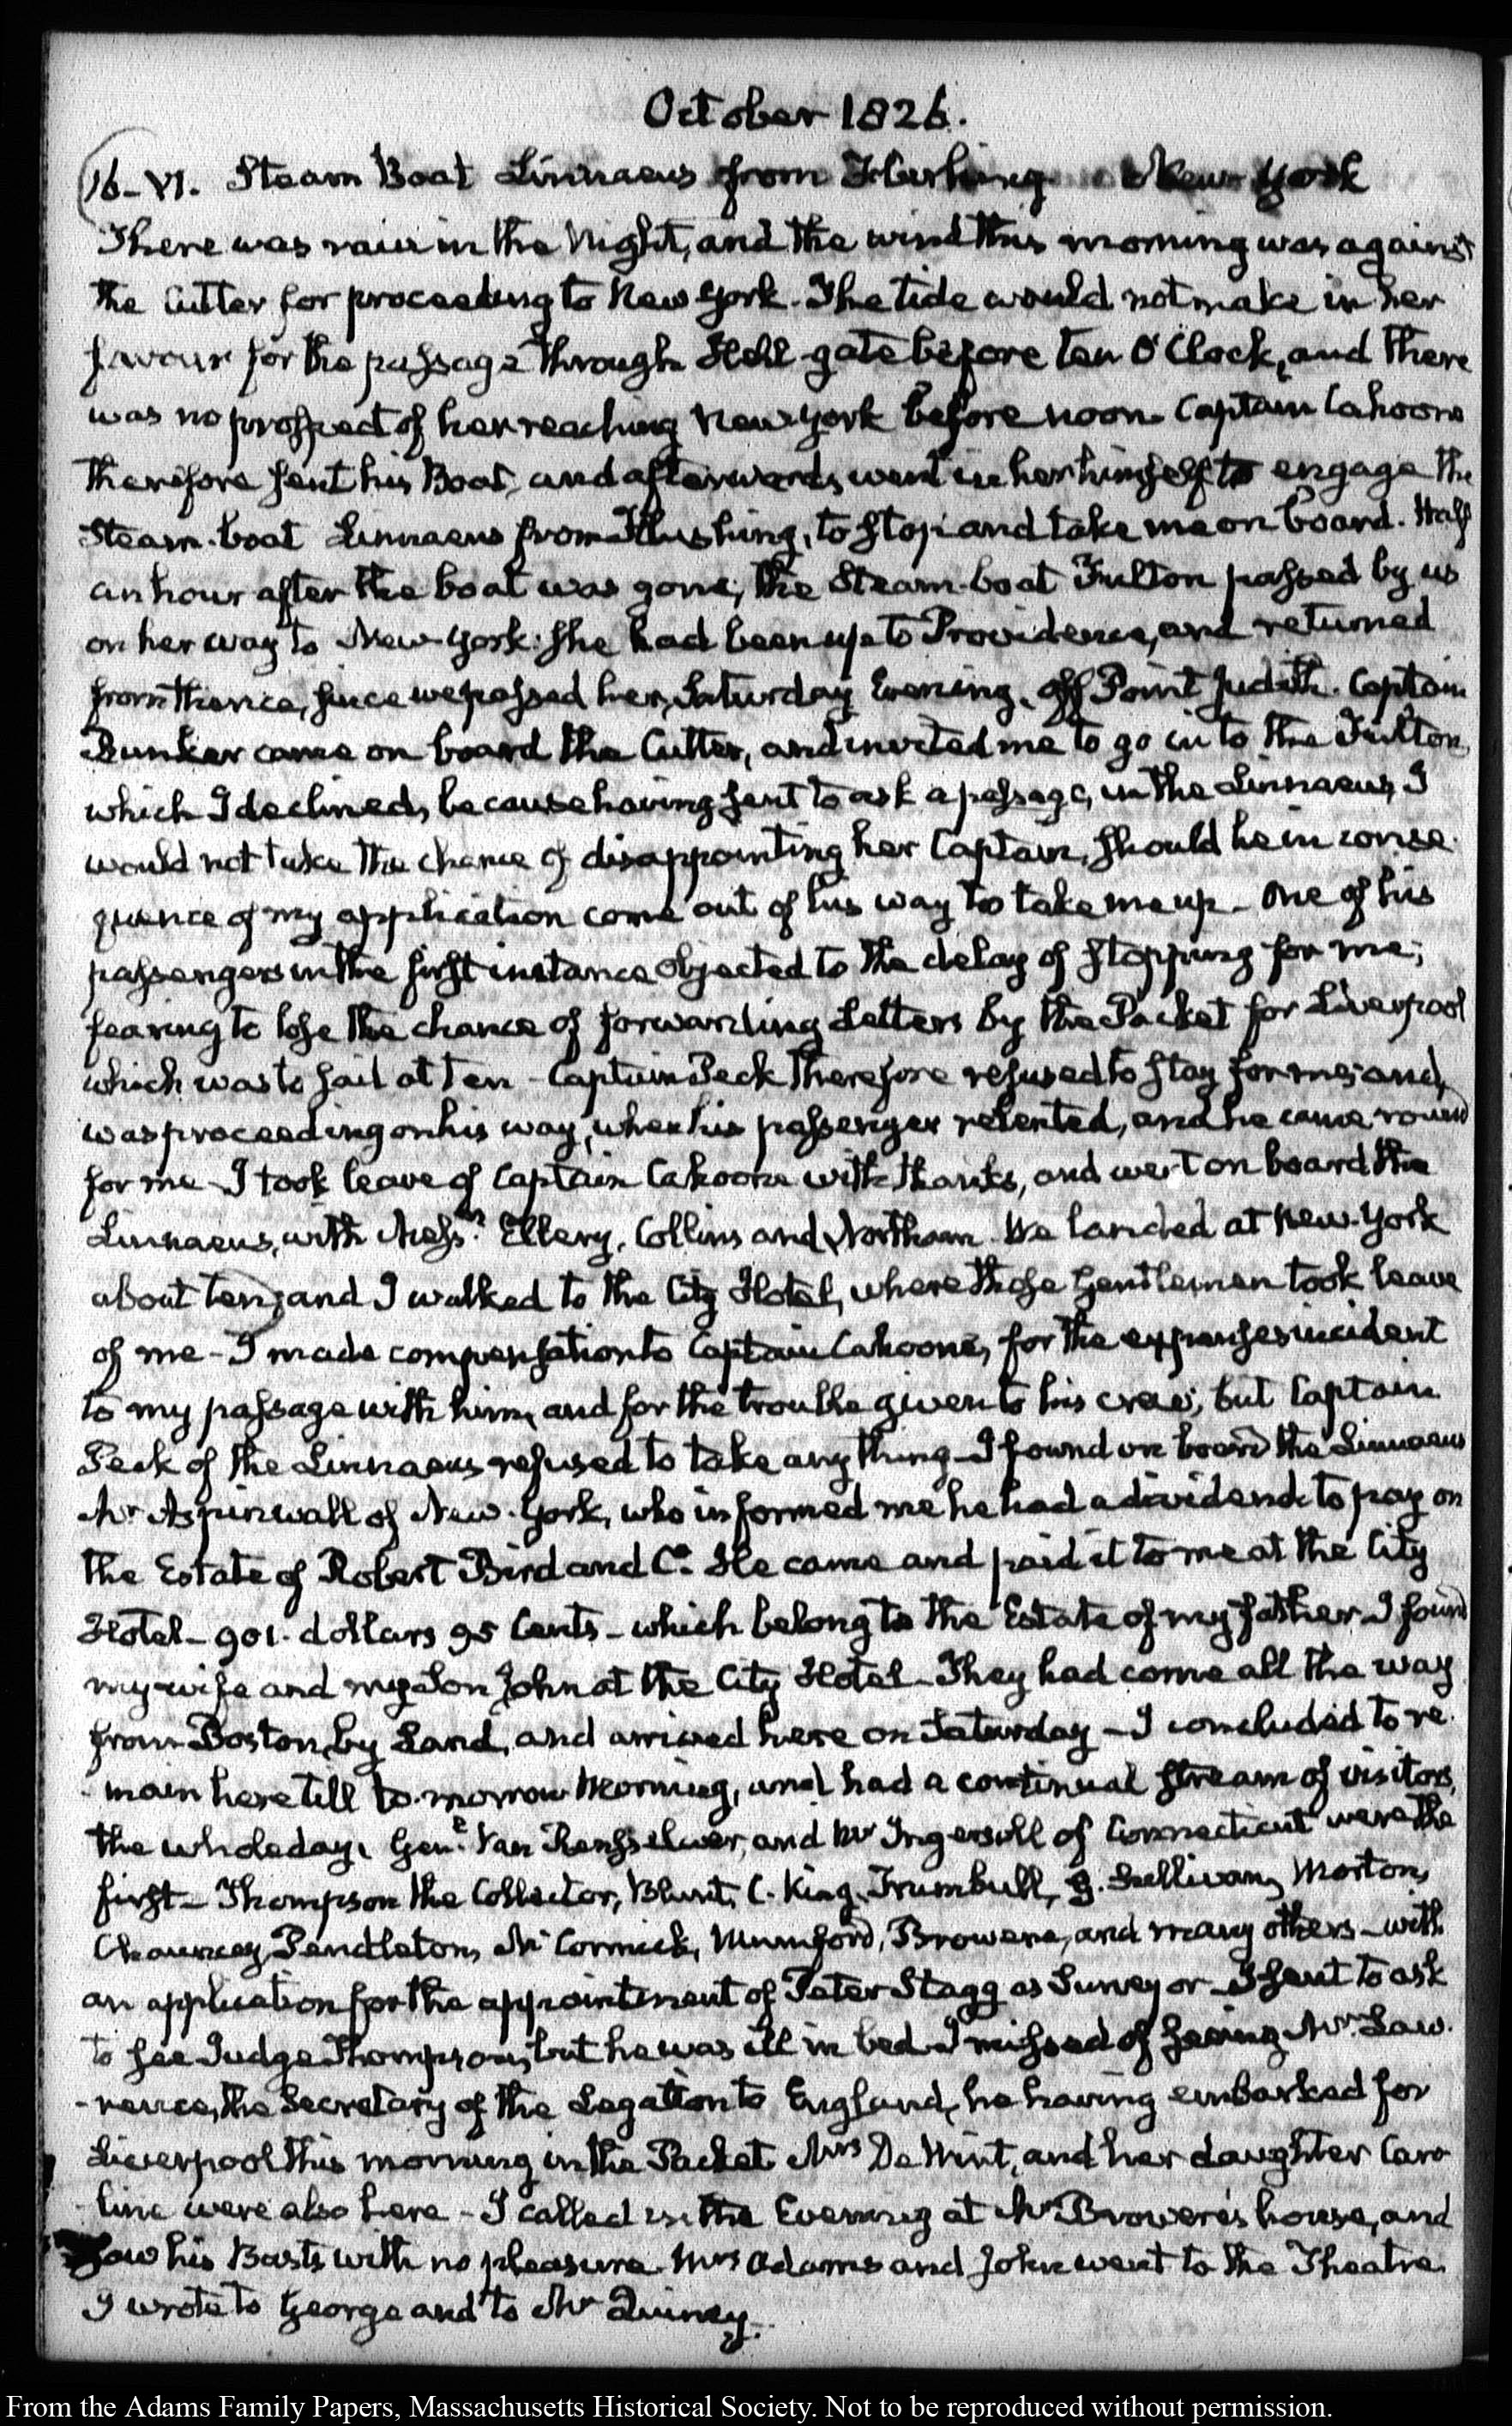 October 1826.
16-VI. Steam Boat Linnaeus from Flushing New York
There was rain in the Night, and the wind this morning was against
the Cutter for proceeding to New York. The tide would not make in her
favour for the passage through Hell-gate before ten O'Clock, and there
was no prospect of her reaching New York before noon. Captain Cahoone
therefore sent his Boat, and afterwards went in her himself to engage the
Steam-boat Linnaeus from Flushing, to stop and take me on board. Half
an hour after the boat was gone, the Steam-boat Fulton passed by us
on her way to New-York. She had been up to Providence, and returned
from thence, since we passed her, Saturday Evening, off Point Judith. Captain
Bunker came on board the Cutter, and invited me to go in to the Fulton,
which I declined, because having sent to ask a passage, in the Linnaeus, I
would not take the chance of disappointing her Captain, should he in conse-
quence of my application come out of his way to take me up. One of his
passengers in the first instance objected to the delay of stopping for me;
fearing to lose the chance of forwarding Letters by the Packet for Liverpool
which was to sail at ten - Captain Peck therefore refused to stay for me; and,
was proceeding on his way, when his passenger relented, and he came round
for me - I took leave of Captain Cahoone with thanks, and went on board the
Linnaeus, with Messrs. Ellery, Collins and Northam. We landed at New-York
about ten, and I walked to the City Hotel, where these Gentlemen took leave
of me - I made compensation to Captain Cahoone, for the expenses incident
to my passage with him, and for the trouble given to his crew; but Captain
Peck of the Linnaeus refused to take any thing - I found on board the Linnaeus
Mr Aspinwall of New-York, who informed me he had a dividend to pay on
the Estate of Robert Bird and Co. He came and paid it to me at the City
Hotel - 901. dollars 95 Cents - which belong to the Estate of my father. I found
my wife and my Son John at the City Hotel - They had come all the way
from Boston, by Land, and arrived here on Saturday - I concluded to re-
-main here till to-morrow Morning, and had a continual stream of visitors,
the whole day. Genl. Van Rensselaer, and Mr Ingersoll of Connecticut were the
first - Thompson the Collector, Blunt, C. King, Trumbull, G. Sullivan, Morton,
Chauncey, Pendleton, McCormick, Mumford, Browere, and many others - with
an application for the appointment of Peter Stagg as Surveyor - I sent to ask
to see Judge Thompson, but he was ill in bed - I missed of seeing Mr. Law-
-rence, the Secretary of the Legation to England, he having embarked for
Liverpool this morning in the Packet. Mrs De Wint, and her daughter Caro-
-line were also here - I called in the Evening at Mr Browere's house, and
saw his Busts with no pleasure. Mrs Adams and John went to the Theatre.
I wrote to George and to Mr Quincy.
From the Adams Family Papers, Massachusetts Historical Society. Not to be reproduced without permission.